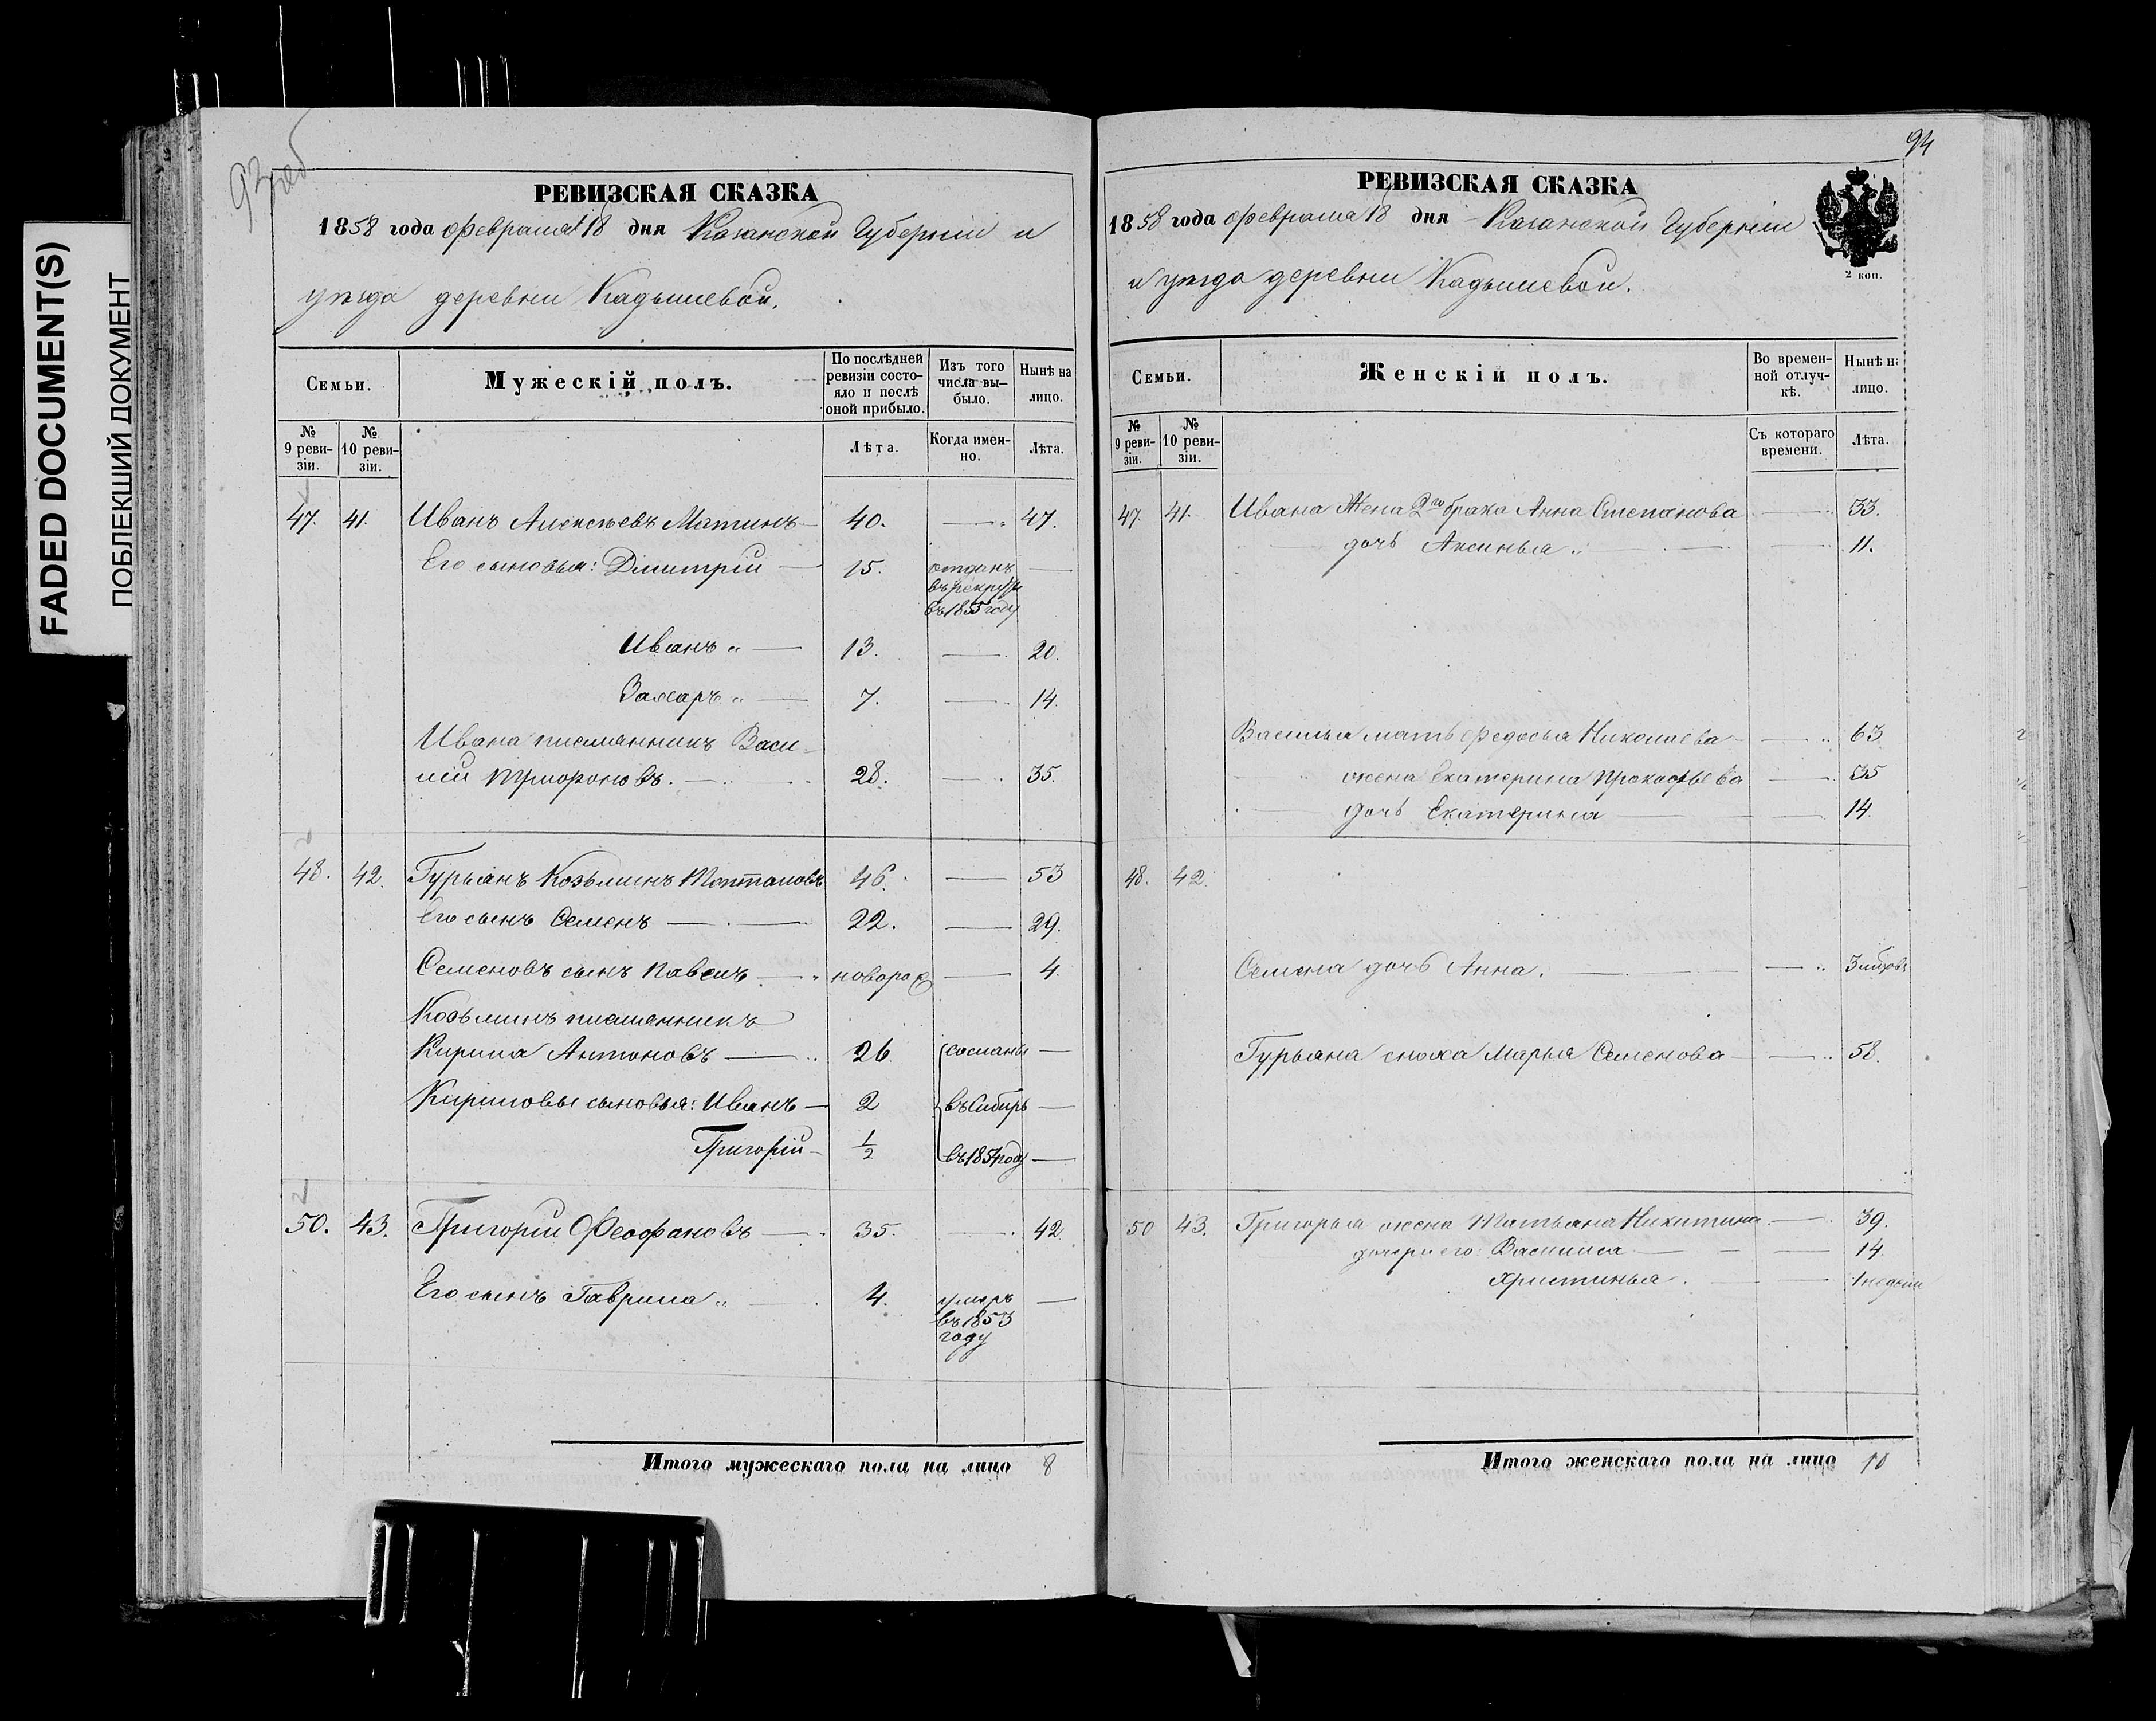 FADED DOCUMENT(S)
ПОБЛЕКШИЙ ДОКУМЕНТ
93 об
РЕВИЗСКАЯ СКАЗКА
1858 года февраля 18 дня Казанской Губерніи и
уѣзда деревни Кадышевой.
Семьи.
Мужескій полъ.
По послѣдней ревизіи состояло и послѣ оной прибыло.
Изъ того числа выбыло.
Нынѣ на лицо.
№ 9 ревизіи.
№ 10 ревизіи.
Лѣта.
Когда именно.
Лѣта.
47. 41. Иванъ Алексѣевъ 40. 47.
Его сыновья: Дмитрій 15. отданъ въ рекруты въ 1855 году
Иванъ 13. 20.
Захаръ 7. 14.
Ивана племянникъ Васи-
лій Трифоновъ. 28. 35.
48. 42. Гурьянъ Козьминъ 46. 53
Его сынъ Семенъ 22. 29.
Семеновъ сынъ Павелъ новорож 4.
Козьминъ племянникъ
Кирила Антоновъ 26. сосланы
Кириловы сыновья: Иванъ 2 въ Сибирь
Григорій 1/2 въ 1854 году
50. 43. Григорій Феофановъ 35. 42.
Его сынъ Гаврила 4. умеръ
въ 1853
году
Итого мужескаго пола на лицо 8
94
РЕВИЗСКАЯ СКАЗКА
2 коп.
1858 года февраля 18 дня Казанской Губерніи
и уѣзда деревни Кадышевой.
Семьи.
Женскій полъ.
Во временной отлучкѣ.
Нынѣ на лицо.
№ 9 ревизіи.
№ 10 ревизіи.
Съ котораго времени.
Лѣта.
47. 41. Ивана Жена 2го брака Анна Степанова 33.
дочь Аксинья 11.
Василья мать Федосья Николаева 63
жена Екатерина Прокофьева 35
дочь Екатерина 14.
48. 42.
Семена дочь Анна. 3 мѣсяцовъ
Гурьяна сноха Марья Семенова 58.
50 43. Григорья жена Татьяна Никитина 39.
дочери его: Василиса 14
Христинья. 1 недели
Итого женскаго пола на лицо 10